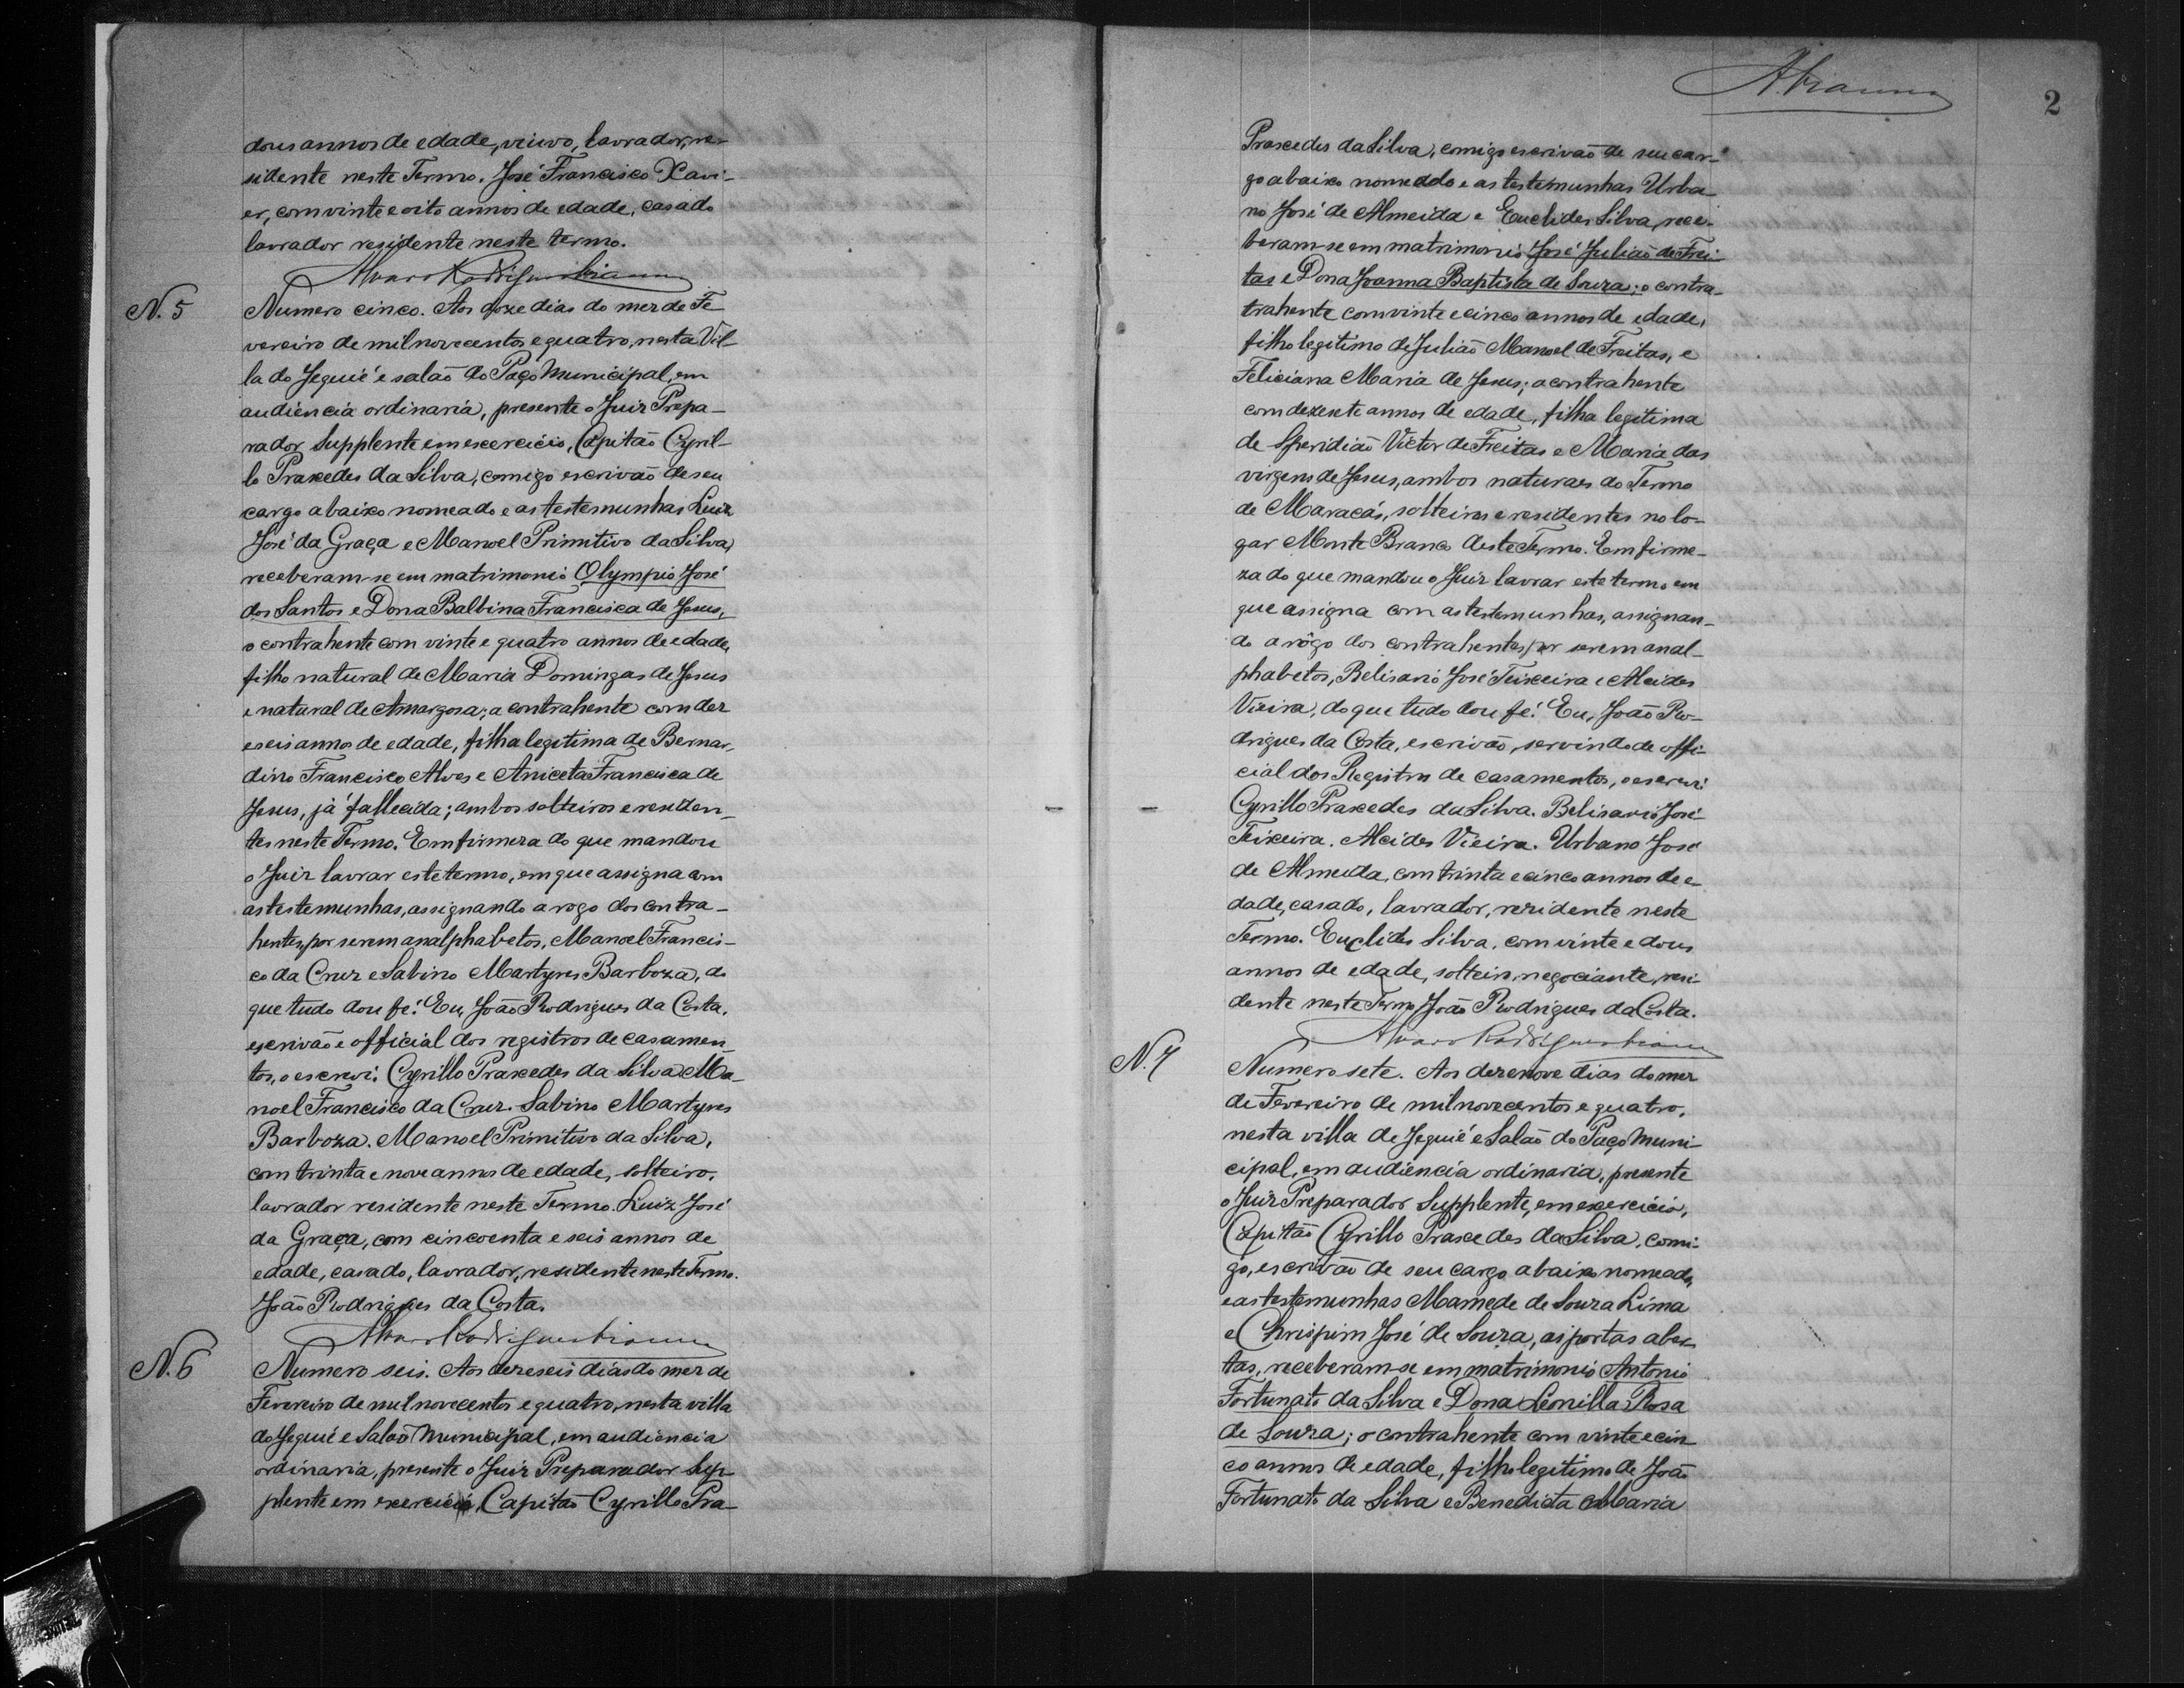 dous annos de edade, viuvo, lavrador, re-
sidente neste Termo. José Francisco Xavi-
er, com vinte e oito annos de edade, casado
lavrador residente neste termo.
Alvaro Rodrigues Vianna
N. 5
Numero cinco. Aos doze dias do mez de Fe
vereiro de mil novecentos e quatro, nesta Vil-
la do Jequié e salão do Paço Municipal, em
audiencia ordinaria, presente o Juiz Prepa-
rador Supplente em exercicio, Capitão Cyril-
lo Praxedes da Silva, comigo escrivão de seu
cargo abaixo nomeado e as testemunhas Luiz
José da Graça e Manoel Primitivo da Silva,
receberam-se em matrimonio Olympio José
dos Santos e Dona Balbina Francisca de Jesus,
o contrahente com vinte e quatro annos de edade,
filho natural de Maria Domingas de Jesus
e natural de Amargosa; a contrahente com dez
e seis annos de edade, filha legitima de Bernar-
dino Francisco Alves e Aniceta Francisca de
Jesus, já fallecida; ambos solteiros e residen-
tes neste Termo. Em firmeza do que mandou
o Juiz lavrar este termo, em que assigna com
as testemunhas, assignando a rogo dos contra-
hentes, por serem analphabetos, Manoel Francis-
co da Cruz e Sabino Martyres Barboza, do
que tudo dou fé. Eu, João Rodrigues da Costa,
escrivão e official dos registros de casamen-
tos, o escrevi. Cyrillo Praxedes da Silva. Ma-
noel Francisco da Cruz. Sabino Martyres
Barboza. Manoel Primitivo da Silva,
com trinta e nove annos de edade, solteiro,
lavrador residente neste Termo. Luiz José
da Graça, com cincoenta e seis annos de
edade, casado, lavrador, residente neste Termo.
João Rodrigues da Costa.
Alvaro Rodrigues Vianna
N. 6
Numero seis. Aos dezeseis dias do mez de
Fevereiro de mil novecentos e quatro, nesta villa
do Jequié e Salão Municipal, em audiencia
ordinaria, presente o Juiz Preparador Sup-
plente em exercicio, Capitão Cyrillo Pra-
AVianna
2
Praxedes da Silva, comigo escrivão de seu car-
go abaixo nomeado e as testemunhas Urba
no José de Almeida e Euclides Silva, rece-
beram-se em matrimonio José Julião de Frei-
tas e Dona Joanna Baptista de Souza; o contra-
trahente com vinte e cinco annos de edade,
filho legitimo de Julião Manoel de Freitas, e
Feliciana Maria de Jesus; a contrahente
com dezesete annos de edade, filha legitima
de Speridião Victor de Freitas e Maria das
virgens de Jesus, ambos naturaes do Termo
de Maracás, solteiros e residentes no lo-
gar Monte Branco deste Termo. Em firme-
za do que mandou o Juiz lavrar este termo em
que assigna com as testemunhas, assignan-
do a rôgo dos contrahentes, por serem anal-
phabetos, Belisario José Teixeira e Alcides
Vieira, do que tudo dou fé. Eu, João Ro-
drigues da Costa, escrivão, servindo de offi-
cial dos Registros de casamentos, o escrevi.
Cyrillo Praxedes da Silva. Belisario José
Teixeira. Alcides Vieira. Urbano José
de Almeida, com trinta e cinco annos de e-
dade, casado, lavrador, rezidente neste
Termo. Euclides Silva, com vinte e dous
annos de edade, solteiro, negociante, resi-
dente neste Termo. João Rodrigues da Costa.
Alvaro Rodrigues Vianna
N. 7
Numero sete. Aos dezenove dias do mez
de Fevereiro de mil novecentos e quatro,
nesta villa de Jequié e Salão do Paço Muni-
cipal, em audiencia ordinaria, presente
o Juiz Preparador Supplente, em exercicio,
Capitão Cyrillo Praxedes da Silva, comi-
go, escrivão de seu cargo abaixo nomeado,
e as testemunhas Mamede de Souza Lima
e Chrispim José de Souza, as portas aber-
tas, receberam-se em matrimonio Antonio
Fortunato da Silva e Dona Leonilla Rosa
de Souza; o contrahente com vinte e cin
co annos de edade, filho legitimo de João
Fortunato da Silva e Benedicta Maria